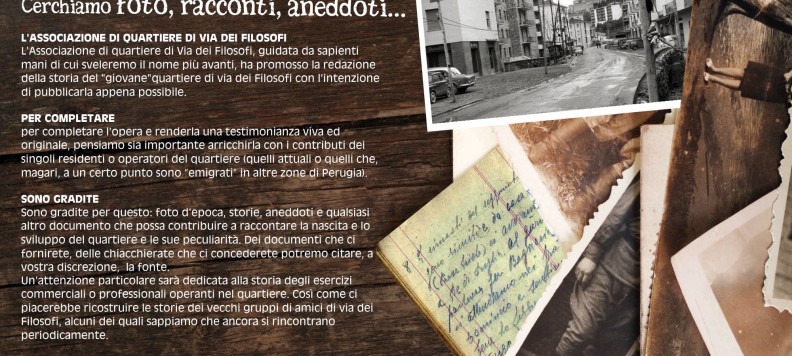 Cerchiamo foto, racconti, aneddoti...
L'ASSOCIAZIONE DI QUARTIERE DI VIA DEI FILOSOFI
L'Associazione di quartiere di Via dei Filosofi, guidata da sapienti
mani di cui sveleremo il nome più avanti, ha promosso la redazione
della storia del "giovane"quartiere di via dei Filosofi con l'intenzione
di pubblicarla appena possibile.
PER COMPLETARE
per completare l'opera e renderla una testimonianza viva ed
originale, pensiamo sia importante arricchirla con i contributi dei
singoli residenti o operatori del quartiere (quelli attuali o quelli che,
magari, a un certo punto sono "emigrati" in altre zone di Perugia).
SONO GRADITE
Sono gradite per questo: foto d'epoca, storie, aneddoti e qualsiasi
altro documento che possa contribuire a raccontare la nascita e lo
sviluppo del quartiere e le sue peculiarità. Dei documenti che ci
fornirete, delle chiacchierate che ci concederete potremo citare, a
vostra discrezione, la fonte.
Un'attenzione particolare sarà dedicata alla storia degli esercizi
commerciali o professionali operanti nel quartiere. Così come ci
piacerebbe ricostruire le storie dei vecchi gruppi di amici di via dei
Filosofi, alcuni dei quali sappiamo che ancora si rincontrano
periodicamente.